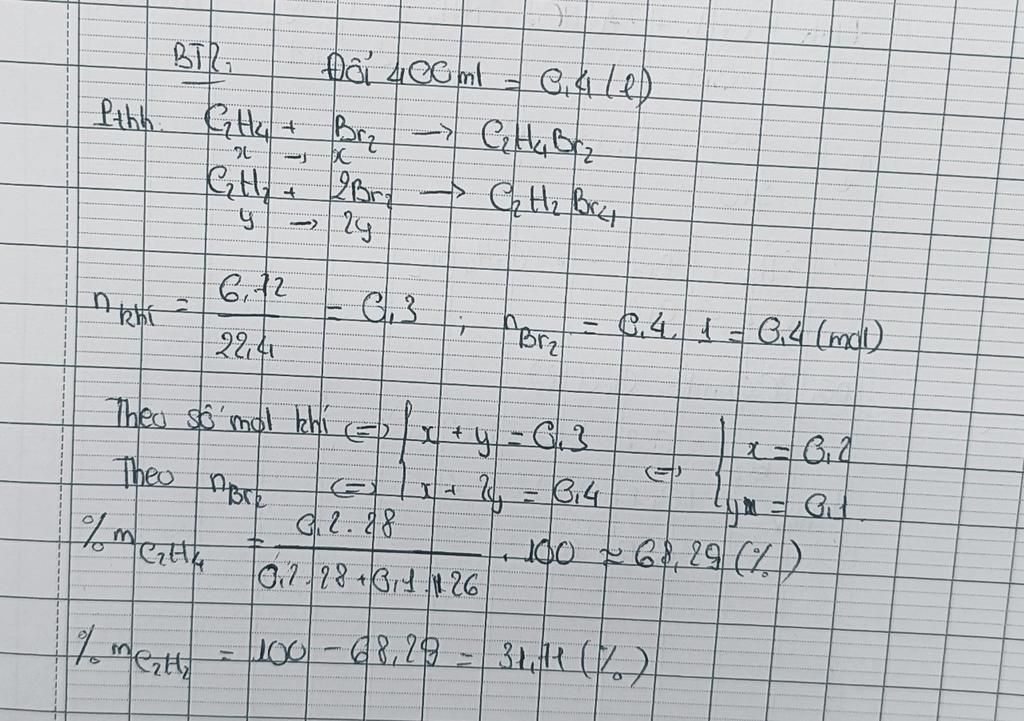 BT2: Đổi 400ml = 0,4 (l)
Pthh: C₂H₄ + Br₂ → C₂H₄Br₂
x → x
C₂H₂ + 2Br₂ → C₂H₂Br₄
y → 2y
n khí = 6,72 / 22,4 = 0,3 ; nBr₂ = 0,4 . 1 = 0,4 (mol)
Theo số mol khí <=> { x + y = 0,3 <=> { x = 0,2
Theo nBr₂ <=> { x + 2y = 0,4 { y = 0,1
%mC₂H₄ = 0,2 . 28 / 0,2 . 28 + 0,1 . 26 . 100 ≈ 68,29 (%)
%mC₂H₂ = 100 - 68,29 = 31,71 (%)